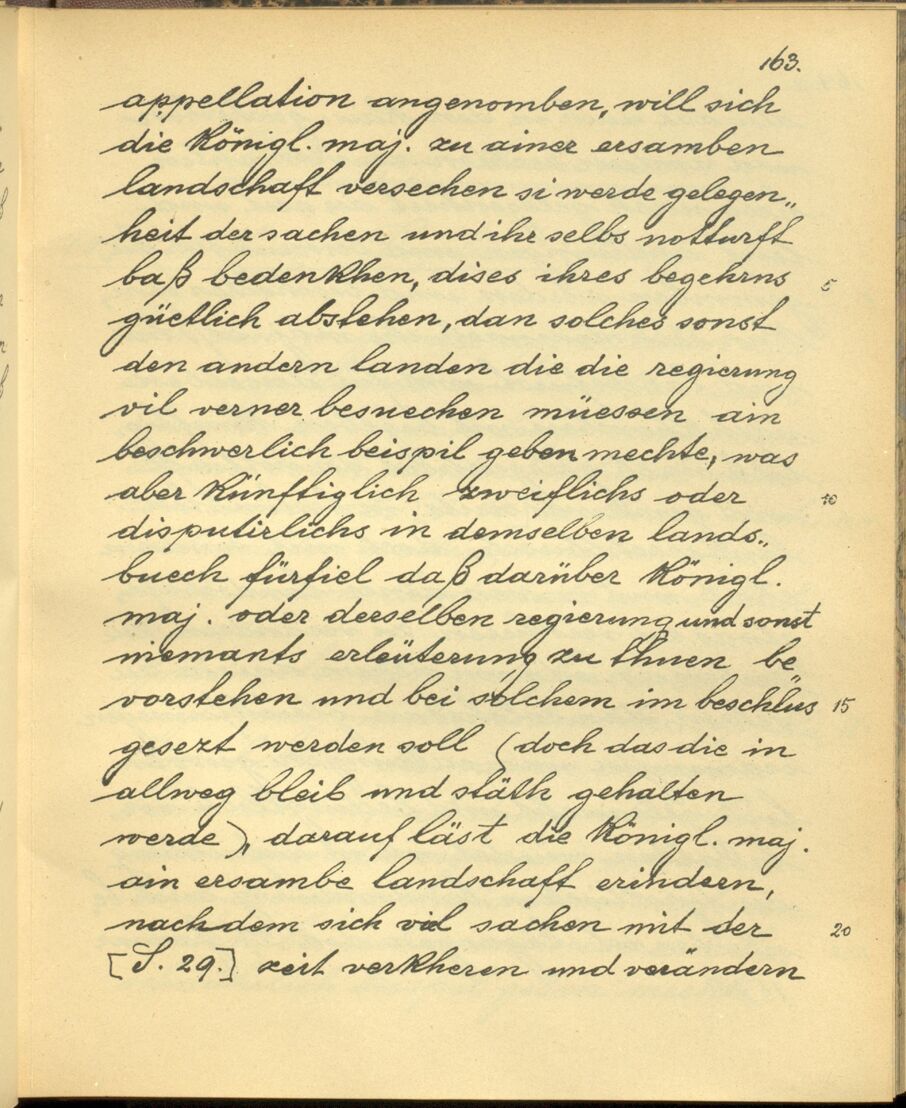 163.
appellation angenomben, will sich
die Königl. maj. zu ainer ersamben
landschaft versechen si werde gelegen„
heit der sachen und ihr selbs notturft
baß bedenkhen, dises ihres begehrns 5
güetlich abstehen, dan solches sonst
den andern landen die die regierung
vil verner besuechen müessen ain
beschwerlich beispil geben mechte, was
aber künftiglich zweiflichs oder 10
disputirlichs in demselben lands„
buech fürfiel daß darüber Königl.
maj. oder derselben regierung und sonst
niemants erleüterung zu thuen be„
vorstehen und bei solchem im beschlus 15
gesezt werden soll (doch das die in
allweg bleib und stäth gehalten
werde), darauf läst die Königl. maj.
ain ersambe landschaft erindern,
nachdem sich vil sachen mit der 20
[S. 29.] zeit verkheren und verändern